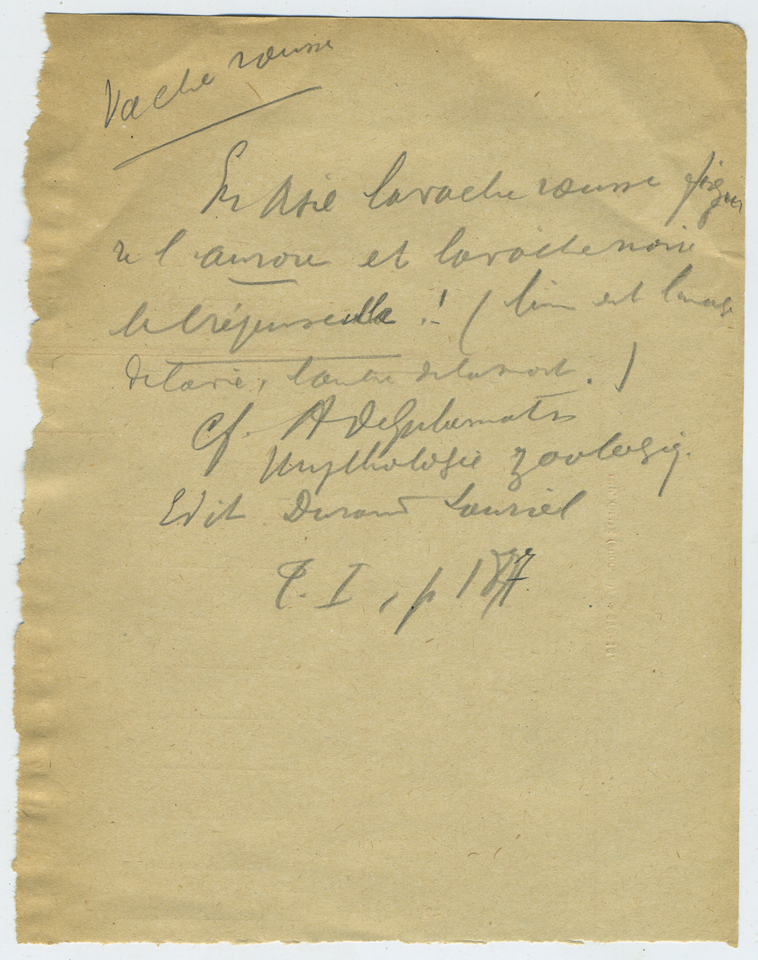 Vache rousse
En Asie la vache rousse figu
re l'aurore et la vache noire
le crépuscule ! ( l'un est l'image
de la vie, l'autre de la mort. )
Cf. A de Gubernatis
Mythologie zoologiq.
Edit Durand Lauriel
T. I, p 187